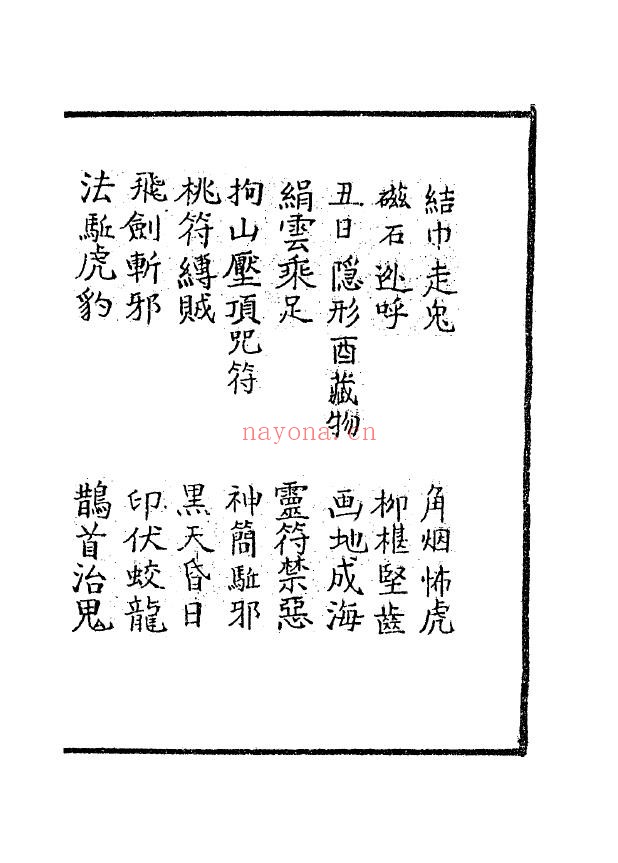 結巾走兔
角烟怖虎
磁石迯呼
柳椹堅齒
丑日隐形酉藏物
画地成海
絹雲乘足
靈符禁惡
拘山壓頂咒符
神簡駈邪
桃符縛賊
黑天昏日
飛劍斬邪
印伏蛟龍
法駈虎豹
鵲首治鬼
nayona.cn